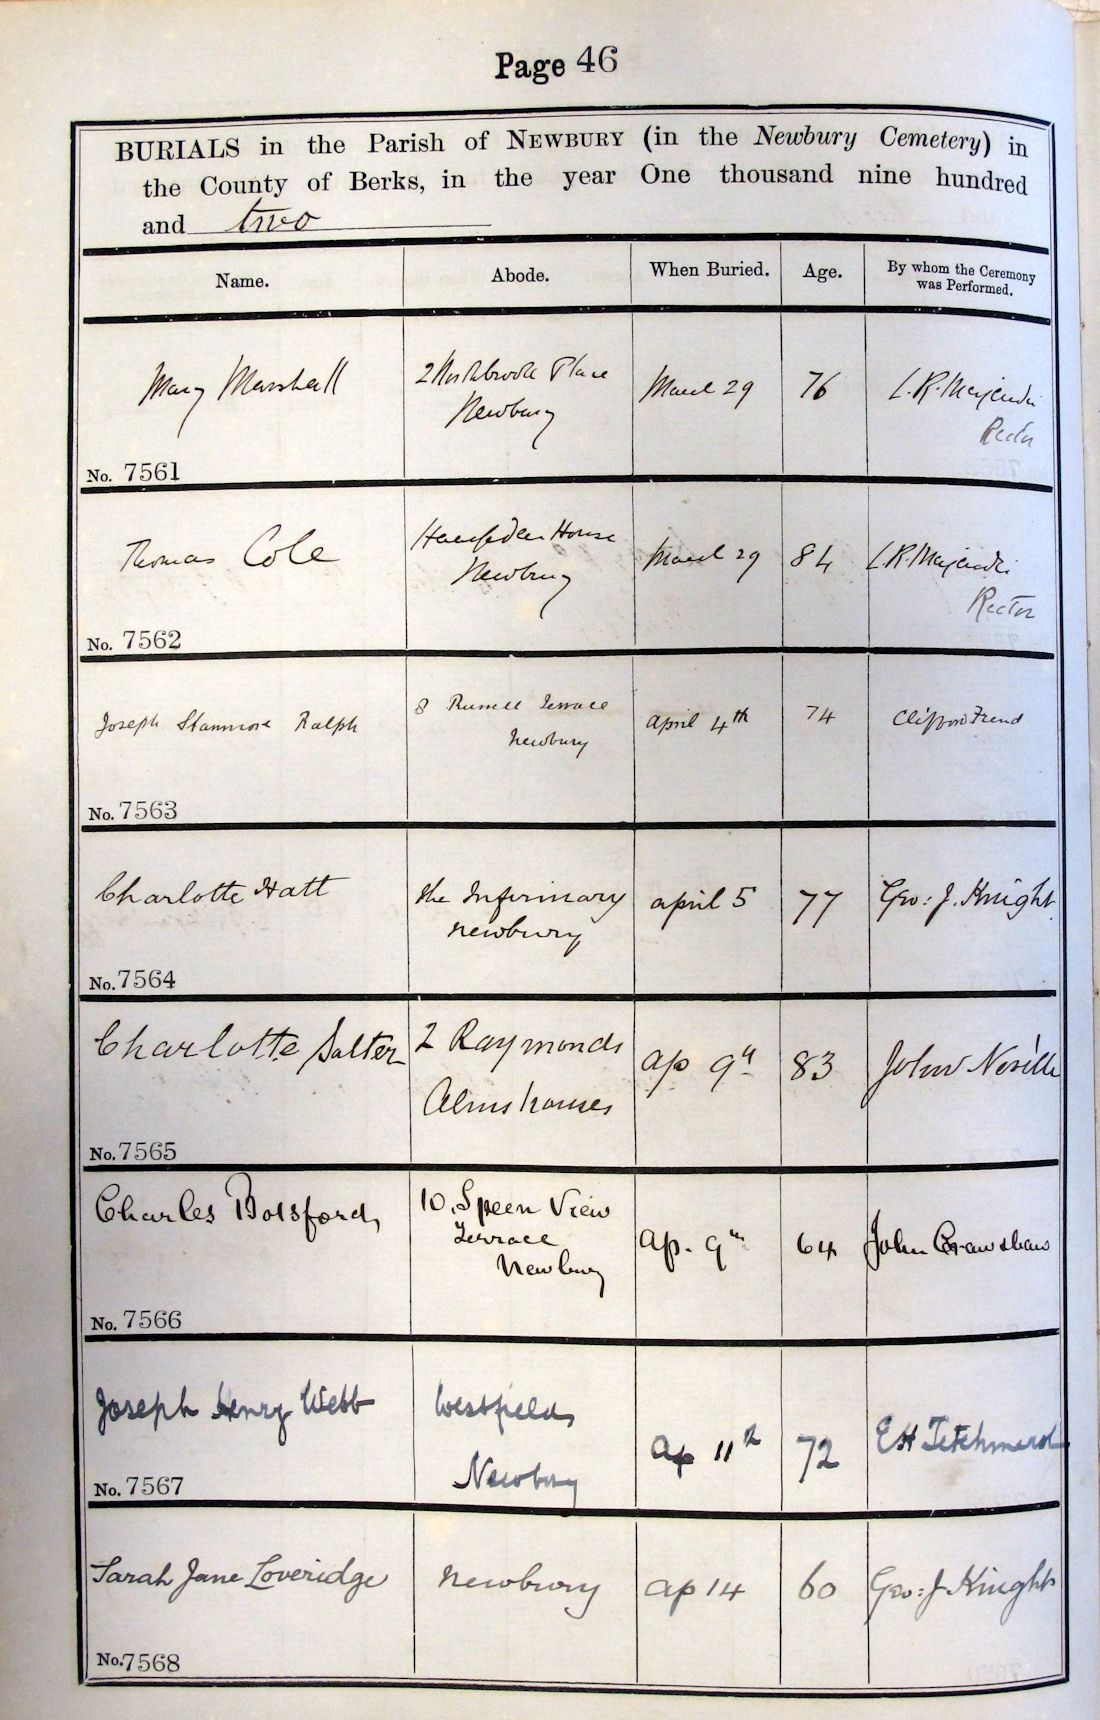 Page 46
BURIALS in the Parish of NEWBURY (in the Newbury Cemetery) in
the County of Berks, in the year One thousand nine hundred
and two
Name. Abode. When Buried. Age. By whom the Ceremony
was Performed.
Mary Marshall 2 Northbrook Place March 29 76 L.R. Majendie
Newbury Rector
No. 7561
Thomas Cole Hampden House March 29 84 L.R. Majendie
Newbury Rector
No. 7562
Joseph Stanmore Ralph 8 Russell Terrace April 4th 74 Clifford Frend
Newbury
No. 7563
Charlotte Hatt the Infirmary april 5 77 Geo: J. Knight
newbury
No. 7564
Charlotte Salter 2 Raymonds ap 9th 83 John Neville
Almshouses
No. 7565
Charles Botsford, 10, Speen View
Terrace Ap. 9th 64 John Crawshaw
Newbury
No. 7566
Joseph Henry Webb Westfields Ap 11th 72 EH Titchmarsh
Newbury
No. 7567
Sarah Jane Loveridge Newbury ap 14 60 Geo: J Knight
No. 7568